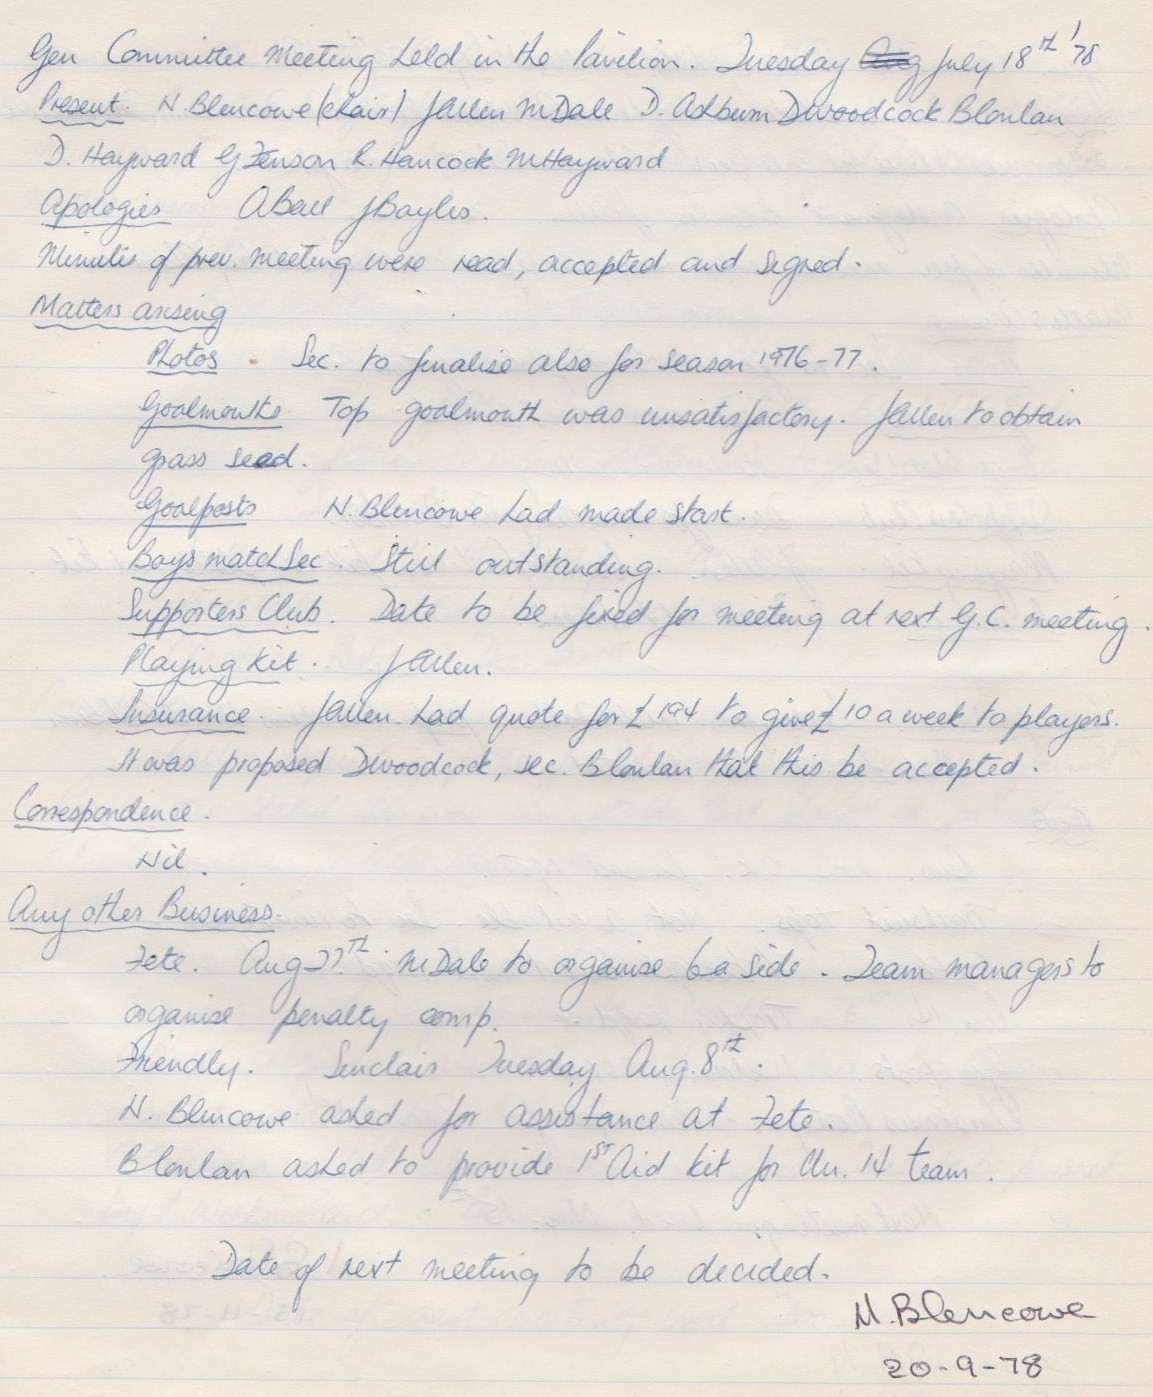 Gen Committee Meeting held in the Pavilion. Tuesday Aug July 18th '78
Present. N. Blencowe (chair) J Allen M Dale D. Ashburn D Woodcock B Conlan
D. Hayward G Fenson R. Hancock M Hayward
Apologies A Ball J Bayliss.
Minutes of prev. meeting were read, accepted and signed.
Matters arising
Photos - Sec. to finalise also for season 1976-77.
Goalmouths Top goalmouth was unsatisfactory. J Allen to obtain
grass seed.
Goalposts N. Blencowe had made start.
Boys match Sec. Still outstanding.
Supporters Club. Date to be fixed for meeting at next G.C. meeting.
Playing Kit. J Allen.
Insurance. J Allen had quote for £194 to give £10 a week to players.
It was proposed D Woodcock, sec. B Conlan that this be accepted.
Correspondence.
Nil.
Any other Business.
Fete. Aug 27th. M Dale to organise 6 a side. Team managers to
organise penalty comp.
Friendly. Sinclair Tuesday Aug. 8th.
N. Blencowe asked for assistance at Fete.
B Conlan asked to provide 1st Aid kit for Un. 14 team.
Date of next meeting to be decided.
N. Blencowe
20-9-78